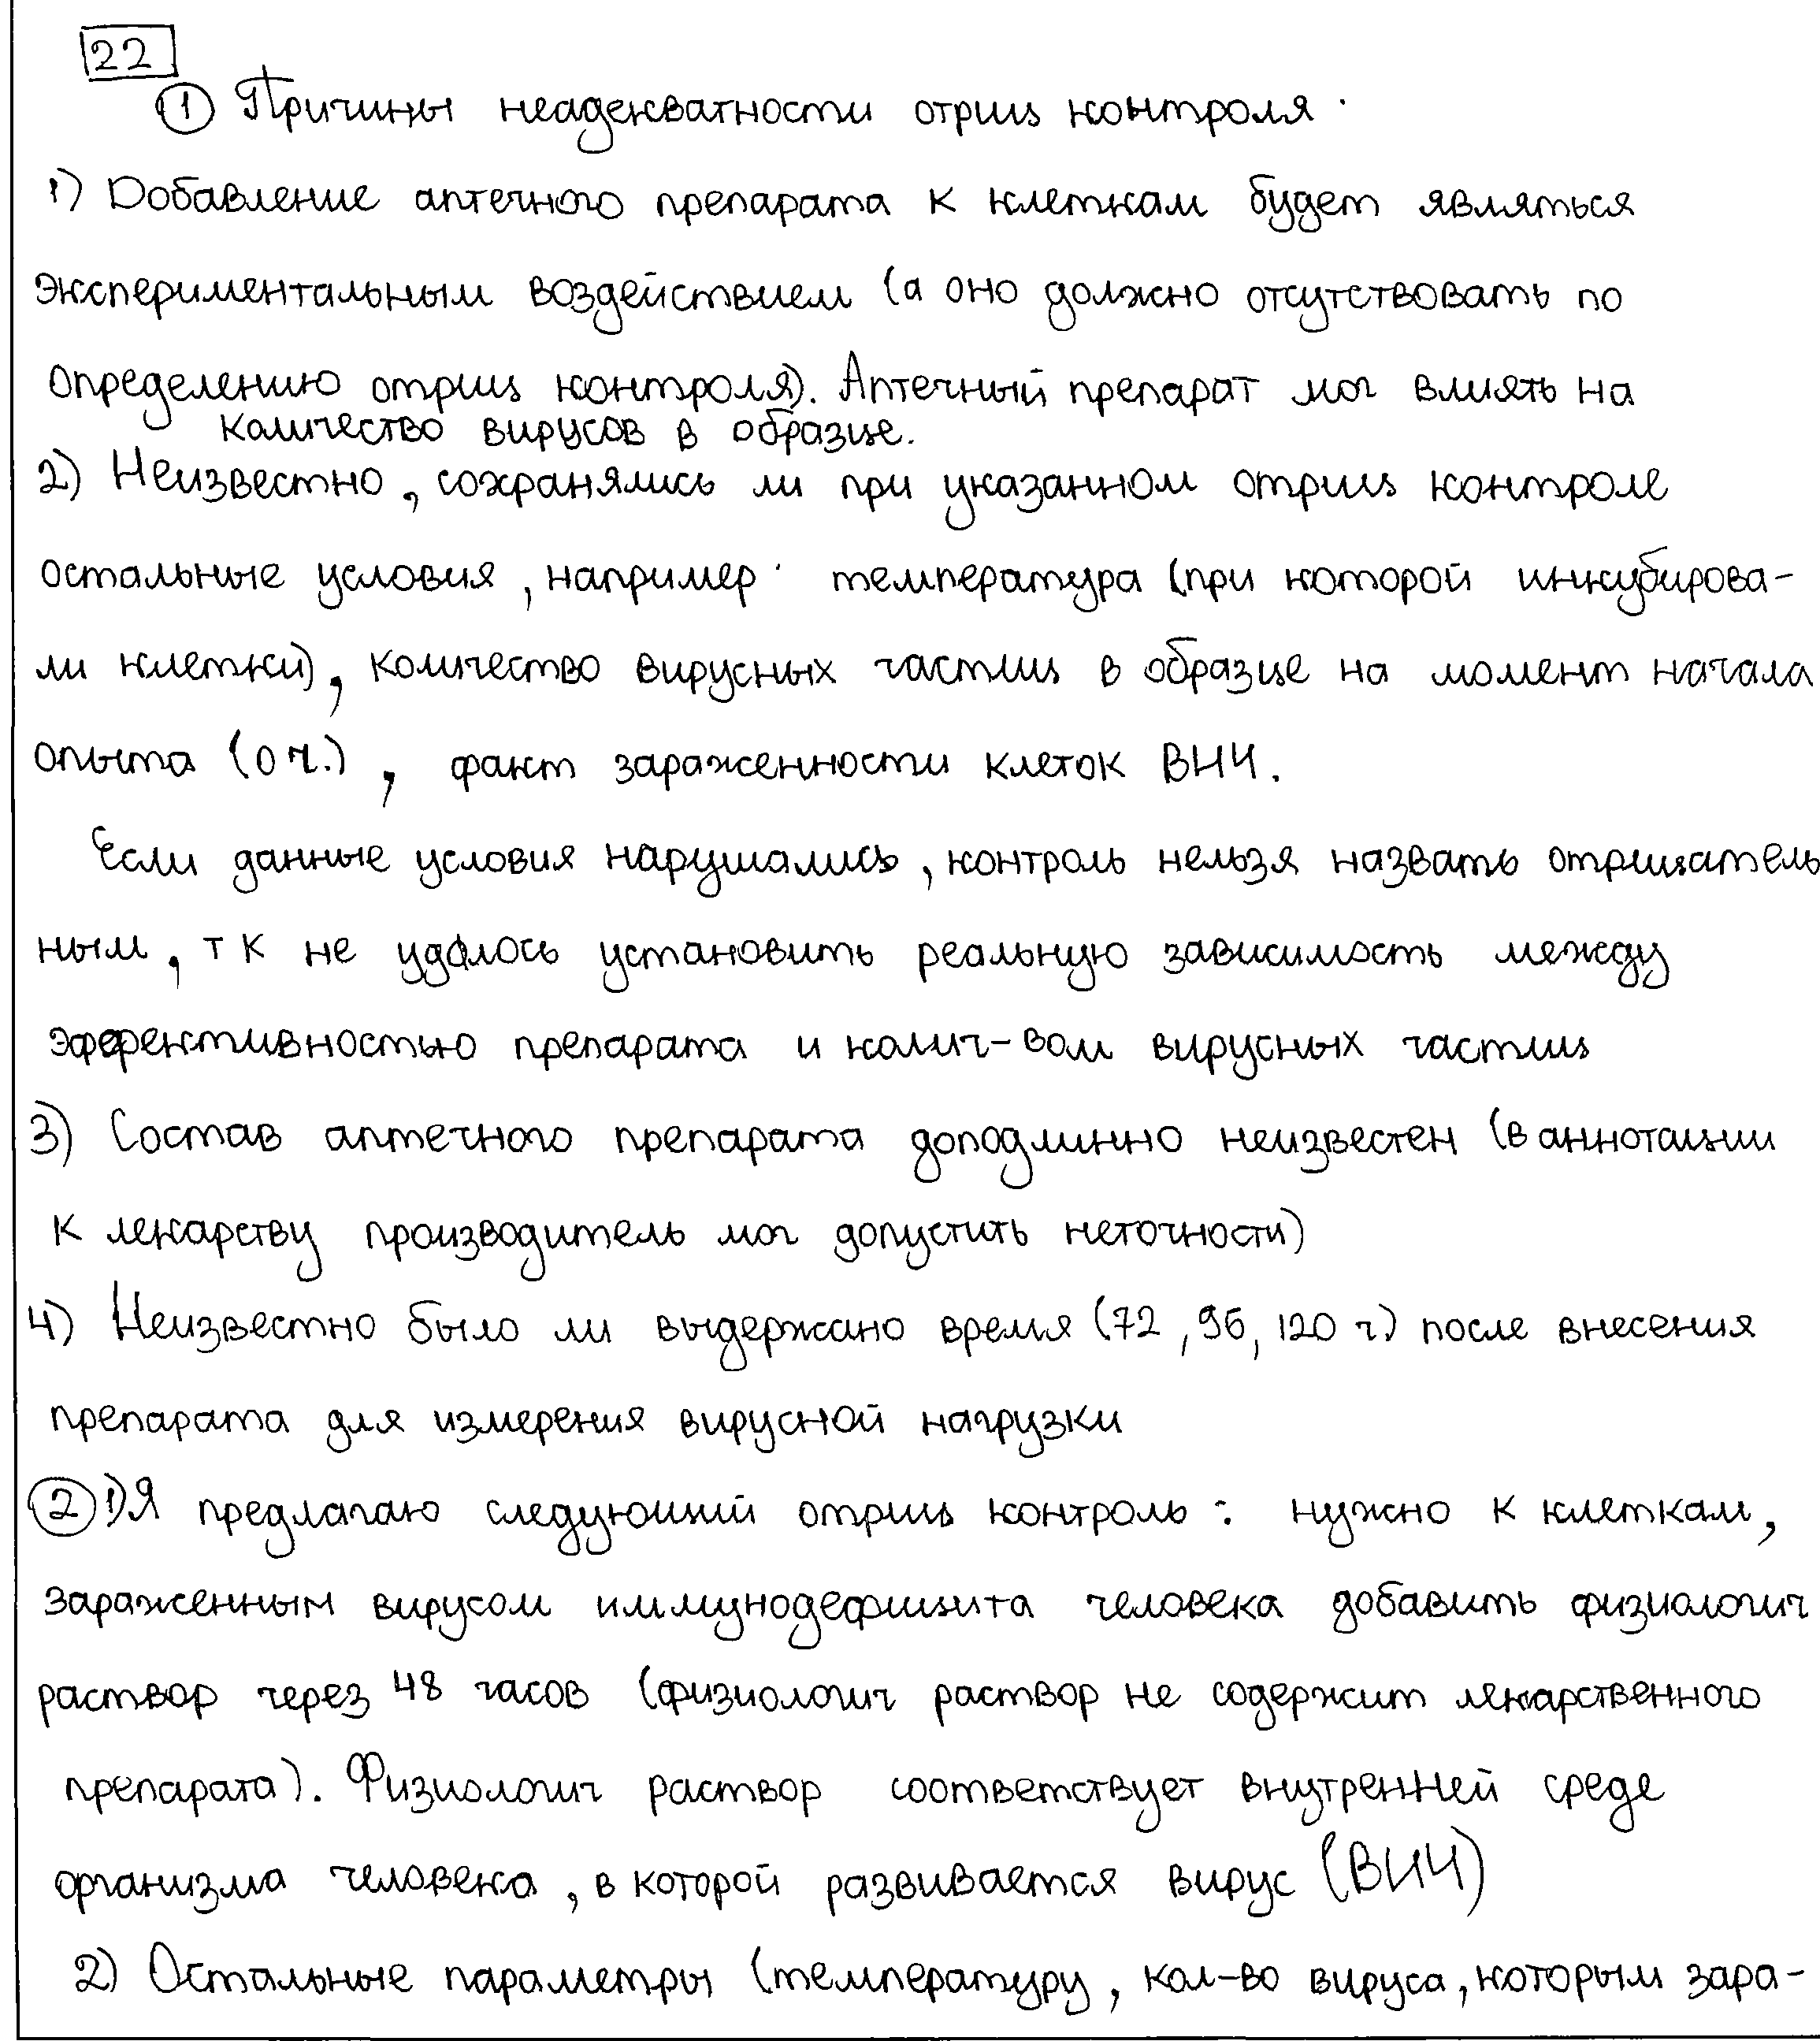 22
① Причины неадекватности отриц контроля.
1) Добавление аптечного препарата к клеткам будет являться
экспериментальным воздействием (а оно должно отсутствовать по
определению отриц контроля). Аптечный препарат мог влиять на
количество вирусов в образце.
2) Неизвестно, сохранялись ли при указанном отриц контроле
остальные условия, например. температура (при которой инкубирова-
ли клетки), количество вирусных частиц в образце на момент начала
опыта (0 ч.), факт зараженности клеток ВИЧ.
Если данные условия нарушались, контроль нельзя назвать отрицатель
ным, т к не удалось установить реальную зависимость между
эффективностью препарата и колич-вом вирусных частиц
3) Состав аптечного препарата доподлинно неизвестен (в аннотации
к лекарству производитель мог допустить неточности)
4) Неизвестно было ли выдержано время (72, 96, 120 ч.) после внесения
препарата для измерения вирусной нагрузки
② 1) Я предлагаю следующий отриц контроль: нужно к клеткам,
зараженным вирусом иммунодефицита человека добавить физиологич
раствор через 48 часов (физиологич раствор не содержит лекарственного
препарата). Физиологич раствор соответствует внутренней среде
организма человека, в которой развивается вирус (ВИЧ)
2) Остальные параметры (температуру, кол-во вируса, которым зара-